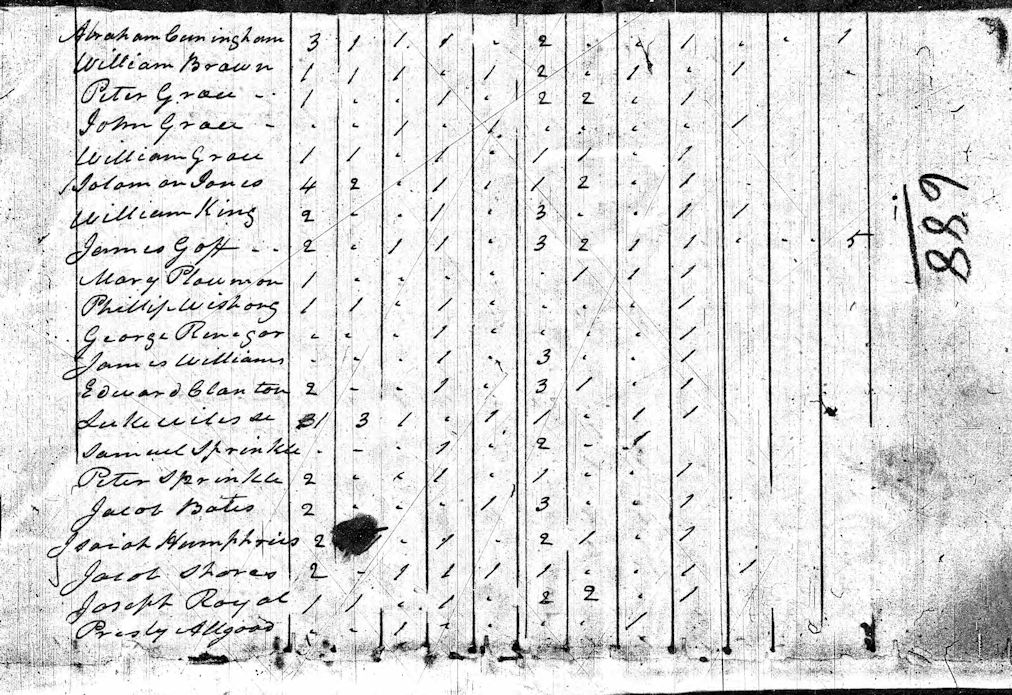 Abraham Cuningham 3 1 1 1 . 2 . . 1 . . 1
William Brown 1 1 1 . 1 2 . 1 . 1
Peter Grace - . 1 . . 1 . 2 2 . 1
John Grace - . . 1 . 1 . . . . 1
William Grace 1 1 . 1 . 1 1 . 1
Solomon Jones 4 2 . 1 . 1 2 . 1
William King 2 . . 1 . 3 . . 1 1
James Goff - - 2 . 1 1 . 3 2 1 1 . . . 5
Mary Plowmon 1 . . . . . 1 1 1
Phillip Wishong 1 1 . 1 . . . . 1
George Renegar . . . 1 . . . . 1
James Williams . . . 1 . 3 . . 1
Edward Clanton 2 - . 1 . 3 1 . 1
Luke 1 3 1 . 1 1 . 1 1
Samuel Sprinkle . - . 1 . 2 - 1
Peter Sprinkle 2 . . 1 . 1 . . 1
Jacob Bates 2 . . . 1 3 . . 1
Isaiah Humphries 2 . 1 . 2 1 . 1
Jacob Shores 2 - 1 1 1 1 . . 1 1
Joseph Royal 1 1 . 1 . 2 2 . 1
Presly Allgood . . 1 . . . . 1
889